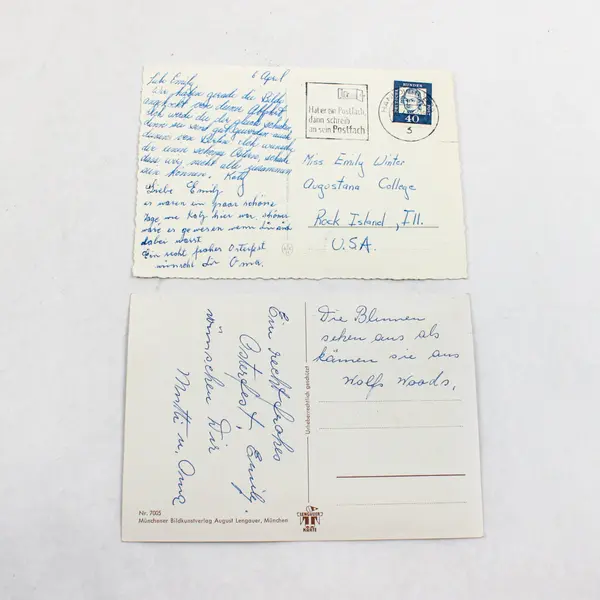 6 April
Liebe Emily
Wir haben gerade die Bilder
angeguckt von deiner Abfahrt
Ich werde die dir gleich schicken
denn sie sind gut geworden auch
deinen von Ich wünsche
dir einen schöne Ostern, schade
dass wir nicht alle zusammen
sein können. Katy
Liebe Emily
es waren ein paar schöne
Tage wie Katy hier war. schöner
wäre es gewesen wenn Du auch
dabei wärst
Ein recht frohes Osterfest
wünscht dir Oma.
Hat er ein Postfach,
dann schreib
an sein Postfach
BUNDES
40
Miss. Emily Winter
Augustana College
Rock Island, Ill.
U.S.A.
Ein recht frohes
Osterfest, Emily.
wünschen Dir
Mutti u. Oma
Unverkäufliches
Die Blumen
sehen aus als
kämen sie aus
Wolfs Woods,
Nr. 7005
Münchener Bildkunstverlag August Lengauer, München
LENGAUER
KARTE